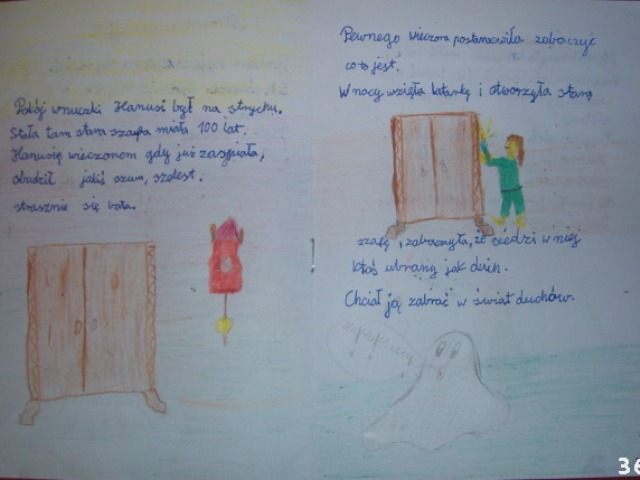 Pokój wnuczki Hanusi był na strychu.
Stała tam stara szafa miała 100 lat.
Hanusię wieczorem gdy już zasypiała,
obudził jakiś szum, szelest.
strasznie się bała.
Pewnego wieczora postanowiła zobaczyć
co to jest.
W nocy wzięła latarkę i otworzyła starą
szafę, zobaczyła, że siedzi w niej
ktoś ubrany jak duch.
Chciał ją zabrać w świat duchów.
36